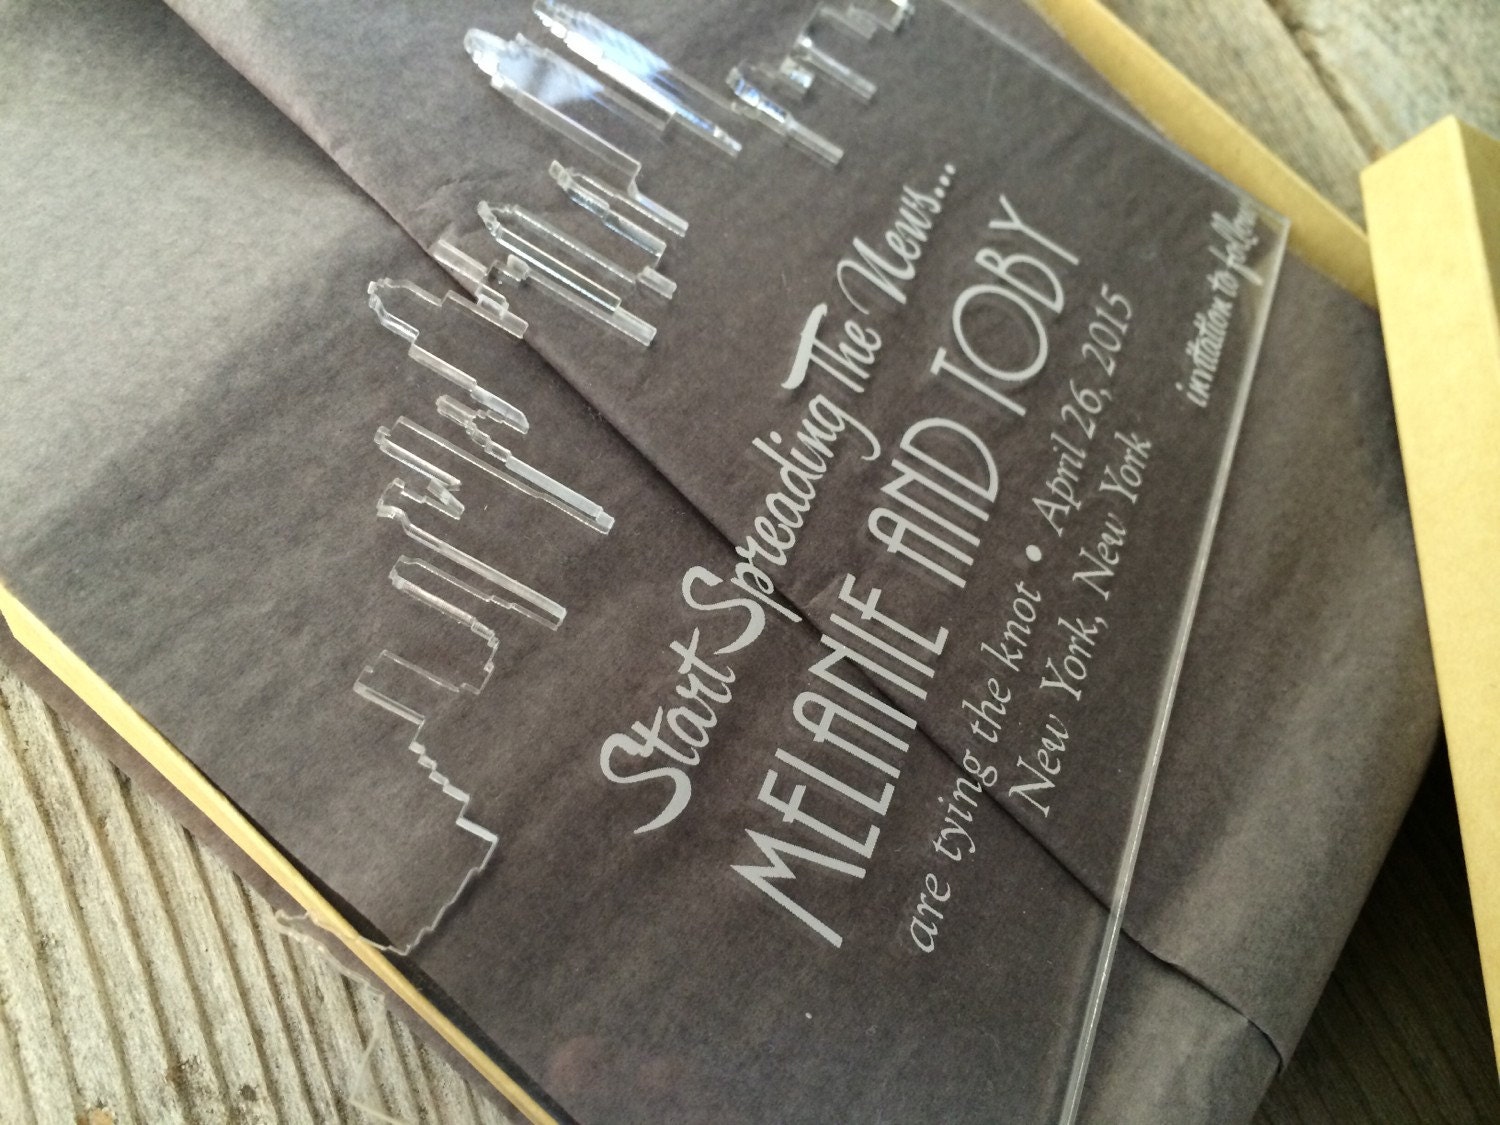 Start Spreading The News...
MELANIE AND TOBY
are tying the knot • April 26, 2015
New York, New York
invitation to follow